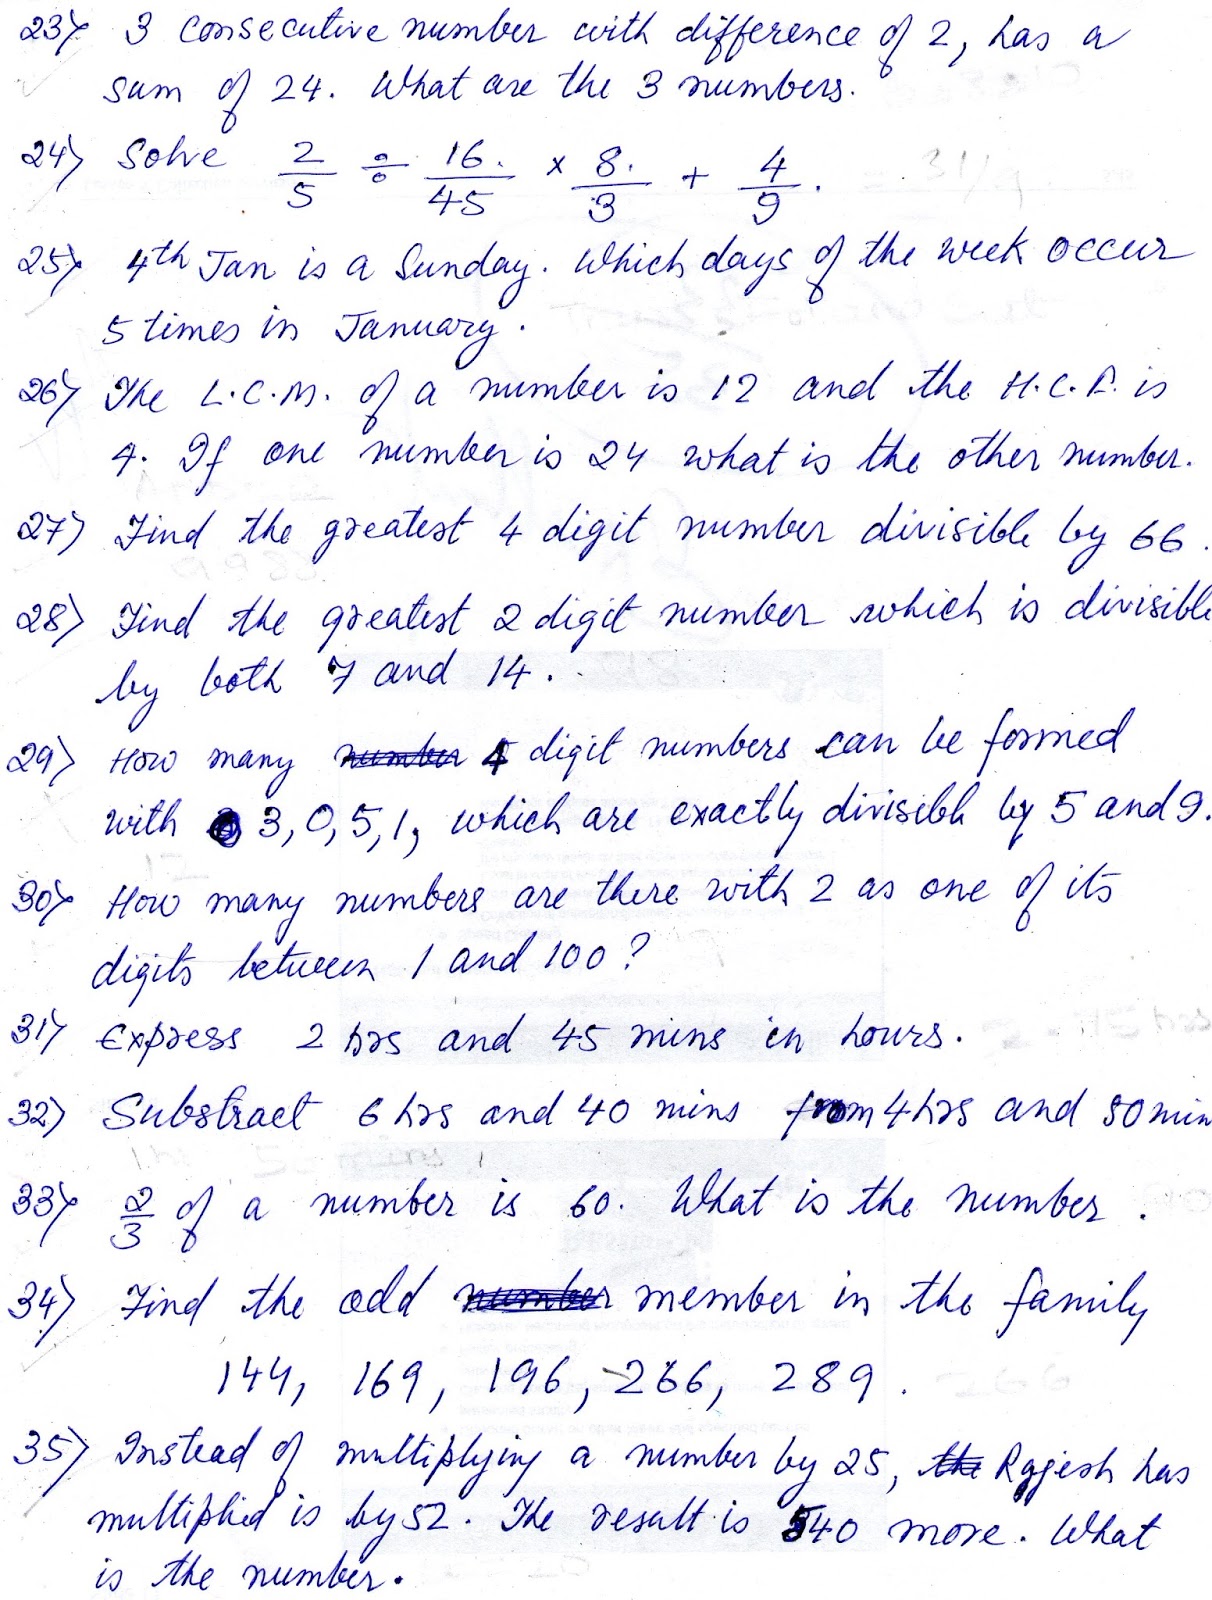 23) 3 consecutive number with difference of 2, has a
sum of 24. What are the 3 numbers.
24) Solve 2/5 ÷ 16/45 × 8/3 + 4/9.
25) 4th Jan is a Sunday. Which days of the week occur
5 times in January.
26) The L.C.M. of a number is 12 and the H.C.F. is
4. If one number is 24 what is the other number.
27) Find the greatest 4 digit number divisible by 66.
28) Find the greatest 2 digit number which is divisible
by both 7 and 14.
29) How many 4 digit numbers can be formed
with 3, 0, 5, 1, which are exactly divisible by 5 and 9.
30) How many numbers are there with 2 as one of its
digits between 1 and 100?
31) Express 2 hrs and 45 mins in hours.
32) Substract 6 hrs and 40 mins from 4 hrs and 50 min
33) 2/3 of a number is 60. What is the number.
34) Find the odd member in the family
144, 169, 196, 266, 289.
35) Instead of multiplying a number by 25, Rajesh has
multiplied is by 52. The result is 540 more. What
is the number.